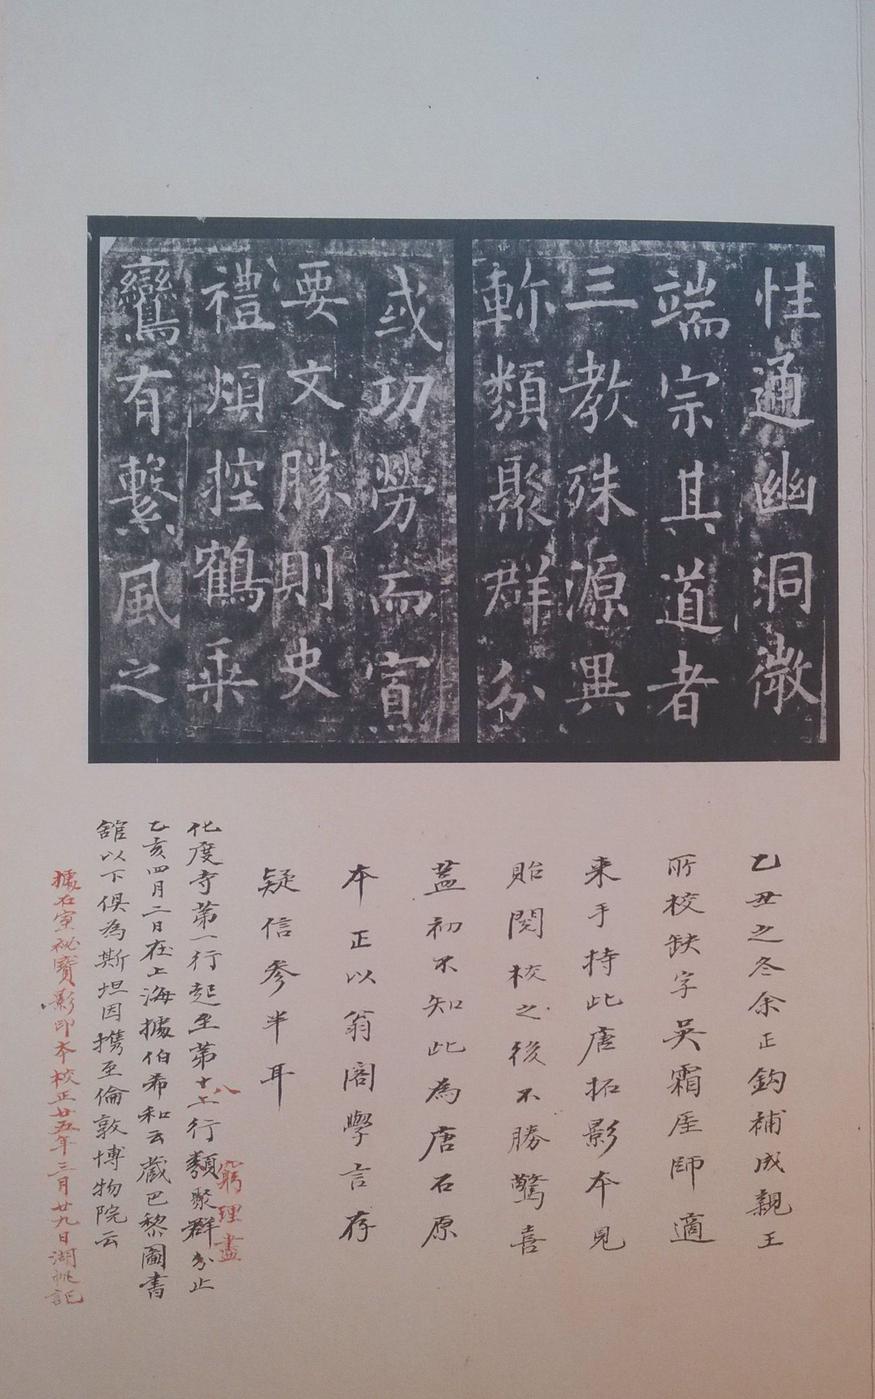 性通幽洞微
端宗其道者
三教殊源異
軫類聚群分
或功勞而寡
要文勝則史
禮煩控鶴乘
鸞有繫風之
乙丑之冬余正鈎補成親王
所校缺字吳霜厓師適
来手持此唐拓影本見
貽閱校之後不勝驚喜
葢初不知此為唐石原
本正以翁閣學言存
疑信參半耳
化度寺第一行起至第十上行類聚群分止
八
窮理盡
乙亥四月二日在上海據伯希和云藏巴黎圖書
舘以下俱為斯坦因攜至倫敦博物院云
據石室祕寶影印本校正廿五年三月廿九日湖帆記